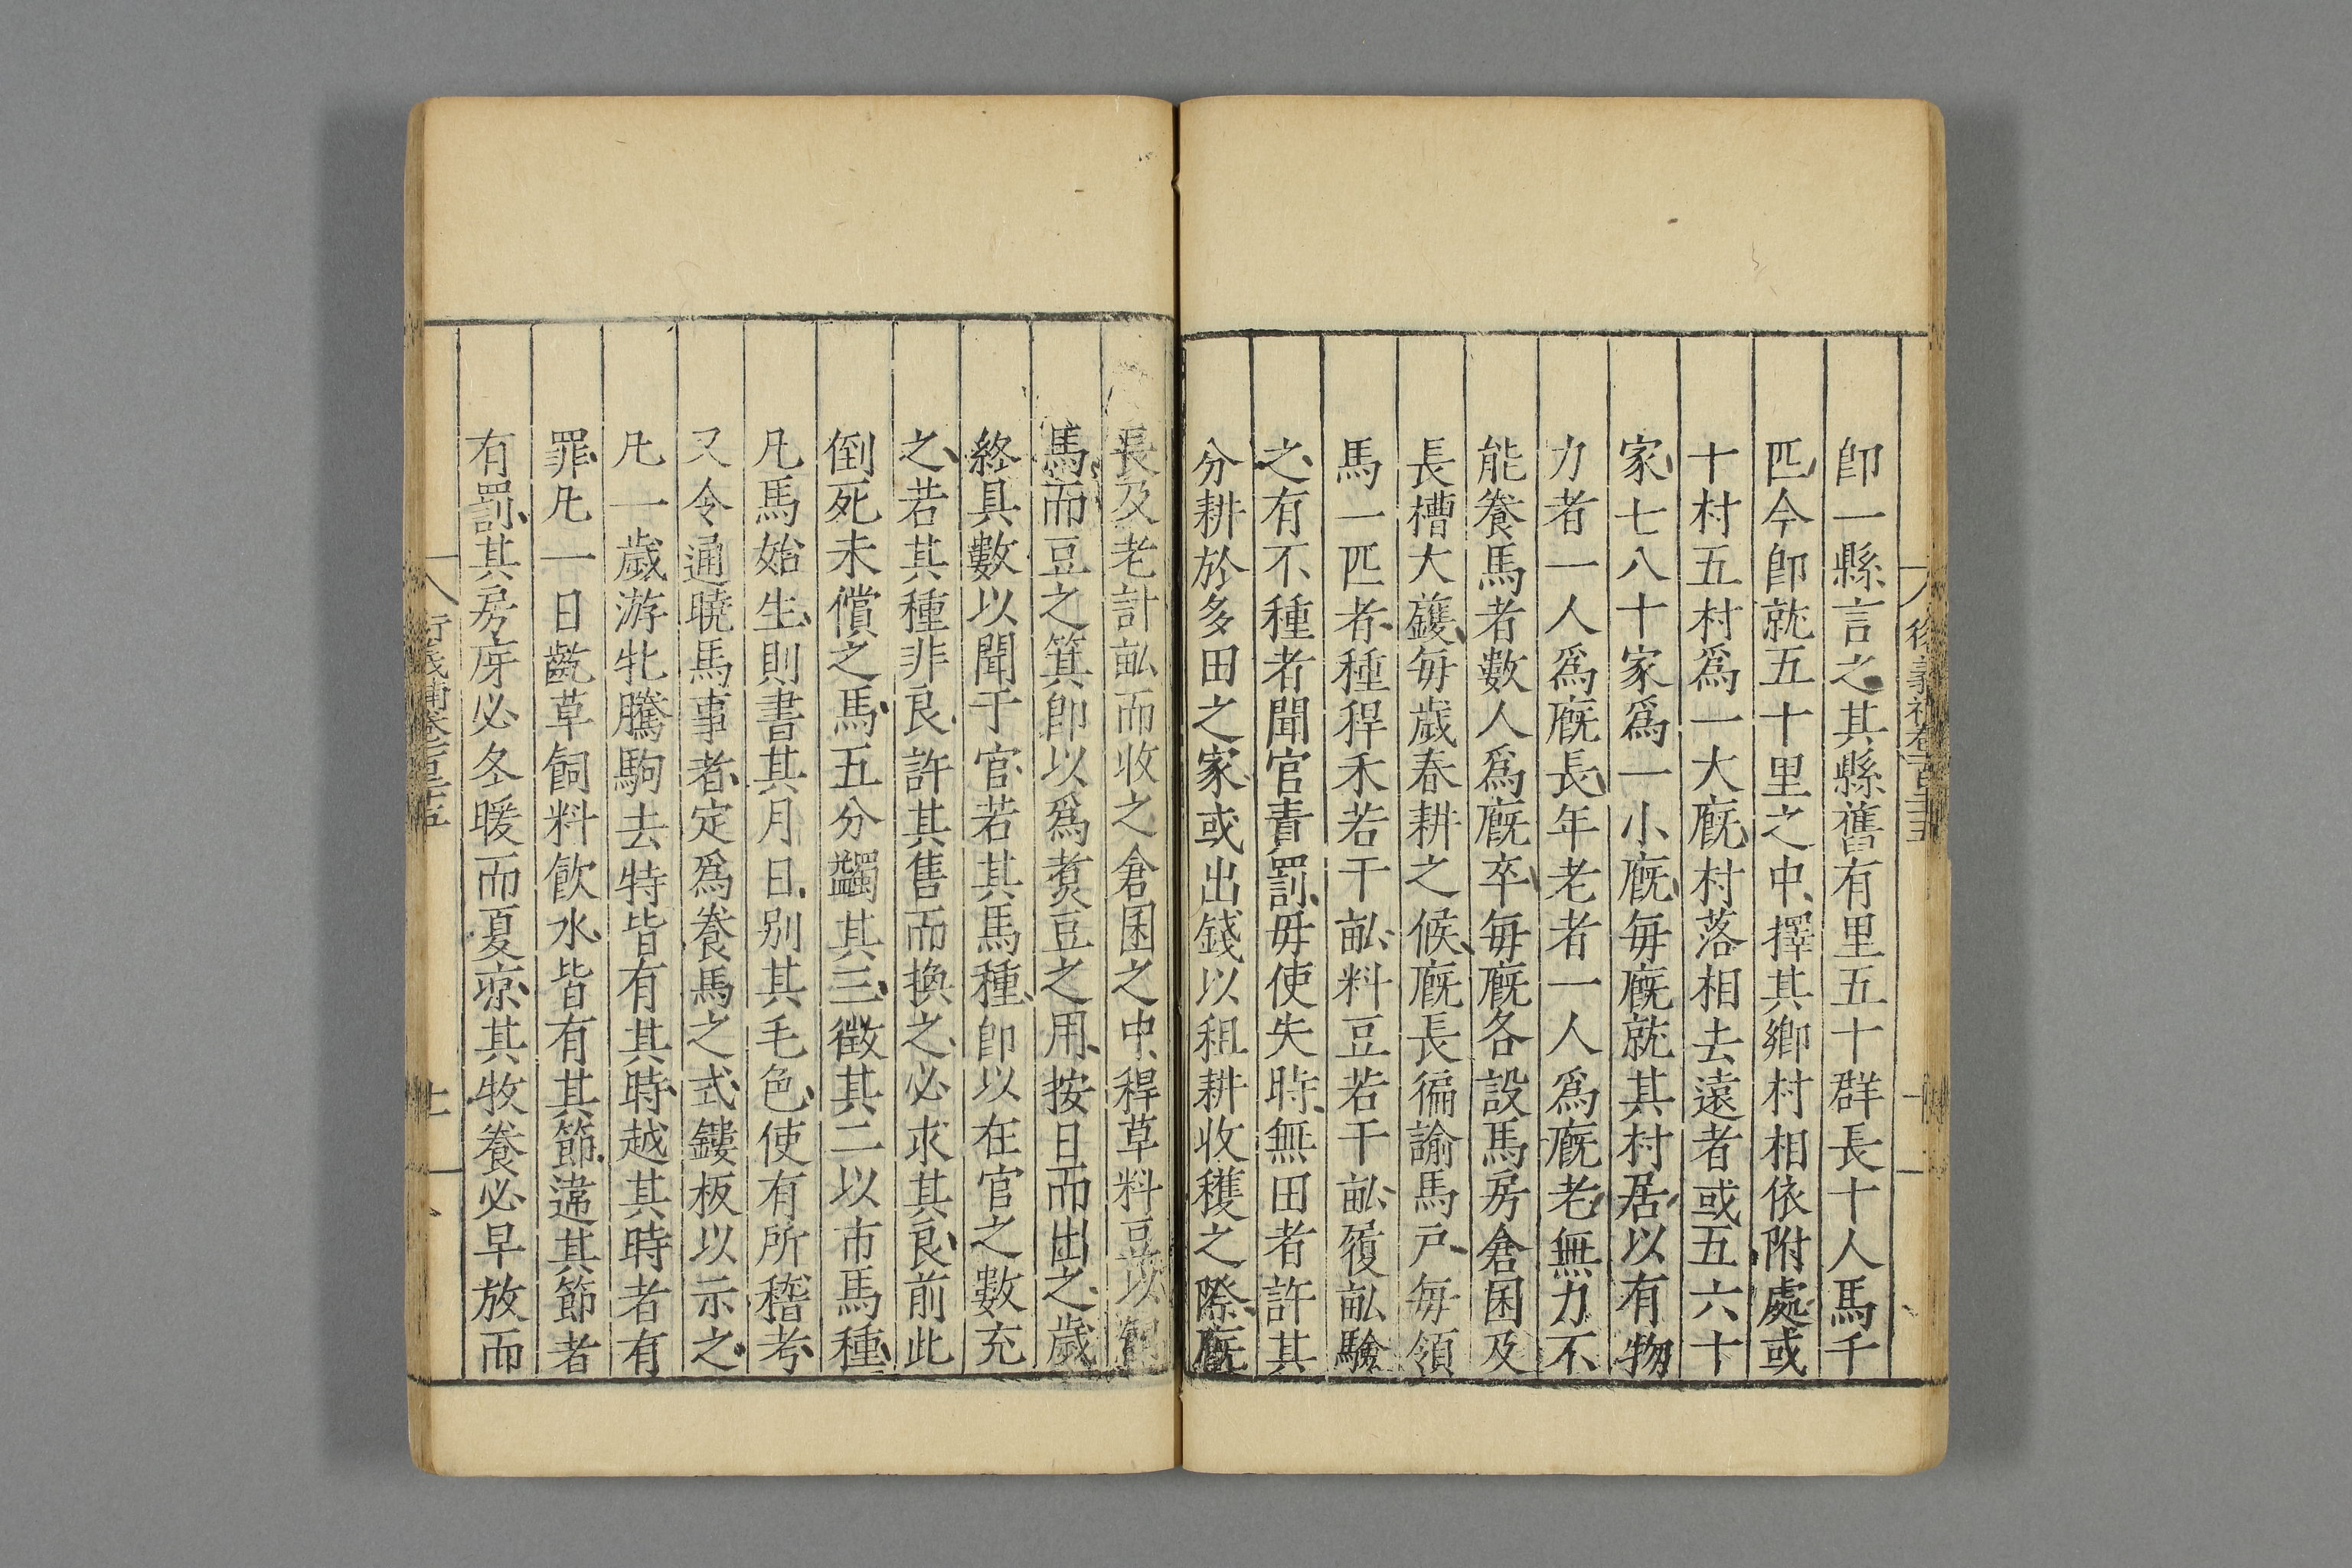 卽一縣言之其縣舊有里五十群長十人馬千
匹今卽就五十里之中擇其鄉村相依附處或
十村五村爲一大廐村落相去遠者或五六十
家七八十家爲一小廐每廐就其村居以有物
力者一人爲廐長年老者一人爲廐老無力不
能養馬者數人爲廐卒每廐各設馬房倉囷及
長槽大鑊每歲春耕之候廐長徧諭馬戶每領
馬一匹者種稈禾若干畝料豆若干畝履畝驗
之有不種者聞官責罰毋使失時無田者許其
分耕於多田之家或出錢以租耕收穫之際廐
長及老計畝而收之倉囷之中稈草料豆以飼
馬而豆之箕卽以爲煑豆之用按日而出之歲
終具數以聞于官若其馬種卽以在官之數充
之若其種非良許其售而換之必求其良前此
倒死未償之馬五分蠲其三徵其二以市馬種
凡馬始生則書其月日别其毛色使有所稽考
又令通曉馬事者定爲養馬之式鏤板以示之
凡一歲游牝騰駒去特皆有其時越其時者有
罪凡一日齕草飼料飮水皆有其節違其節者
有罰其房庌必冬暖而夏凉其牧養必早放而
衍義補卷一百二十五
十一